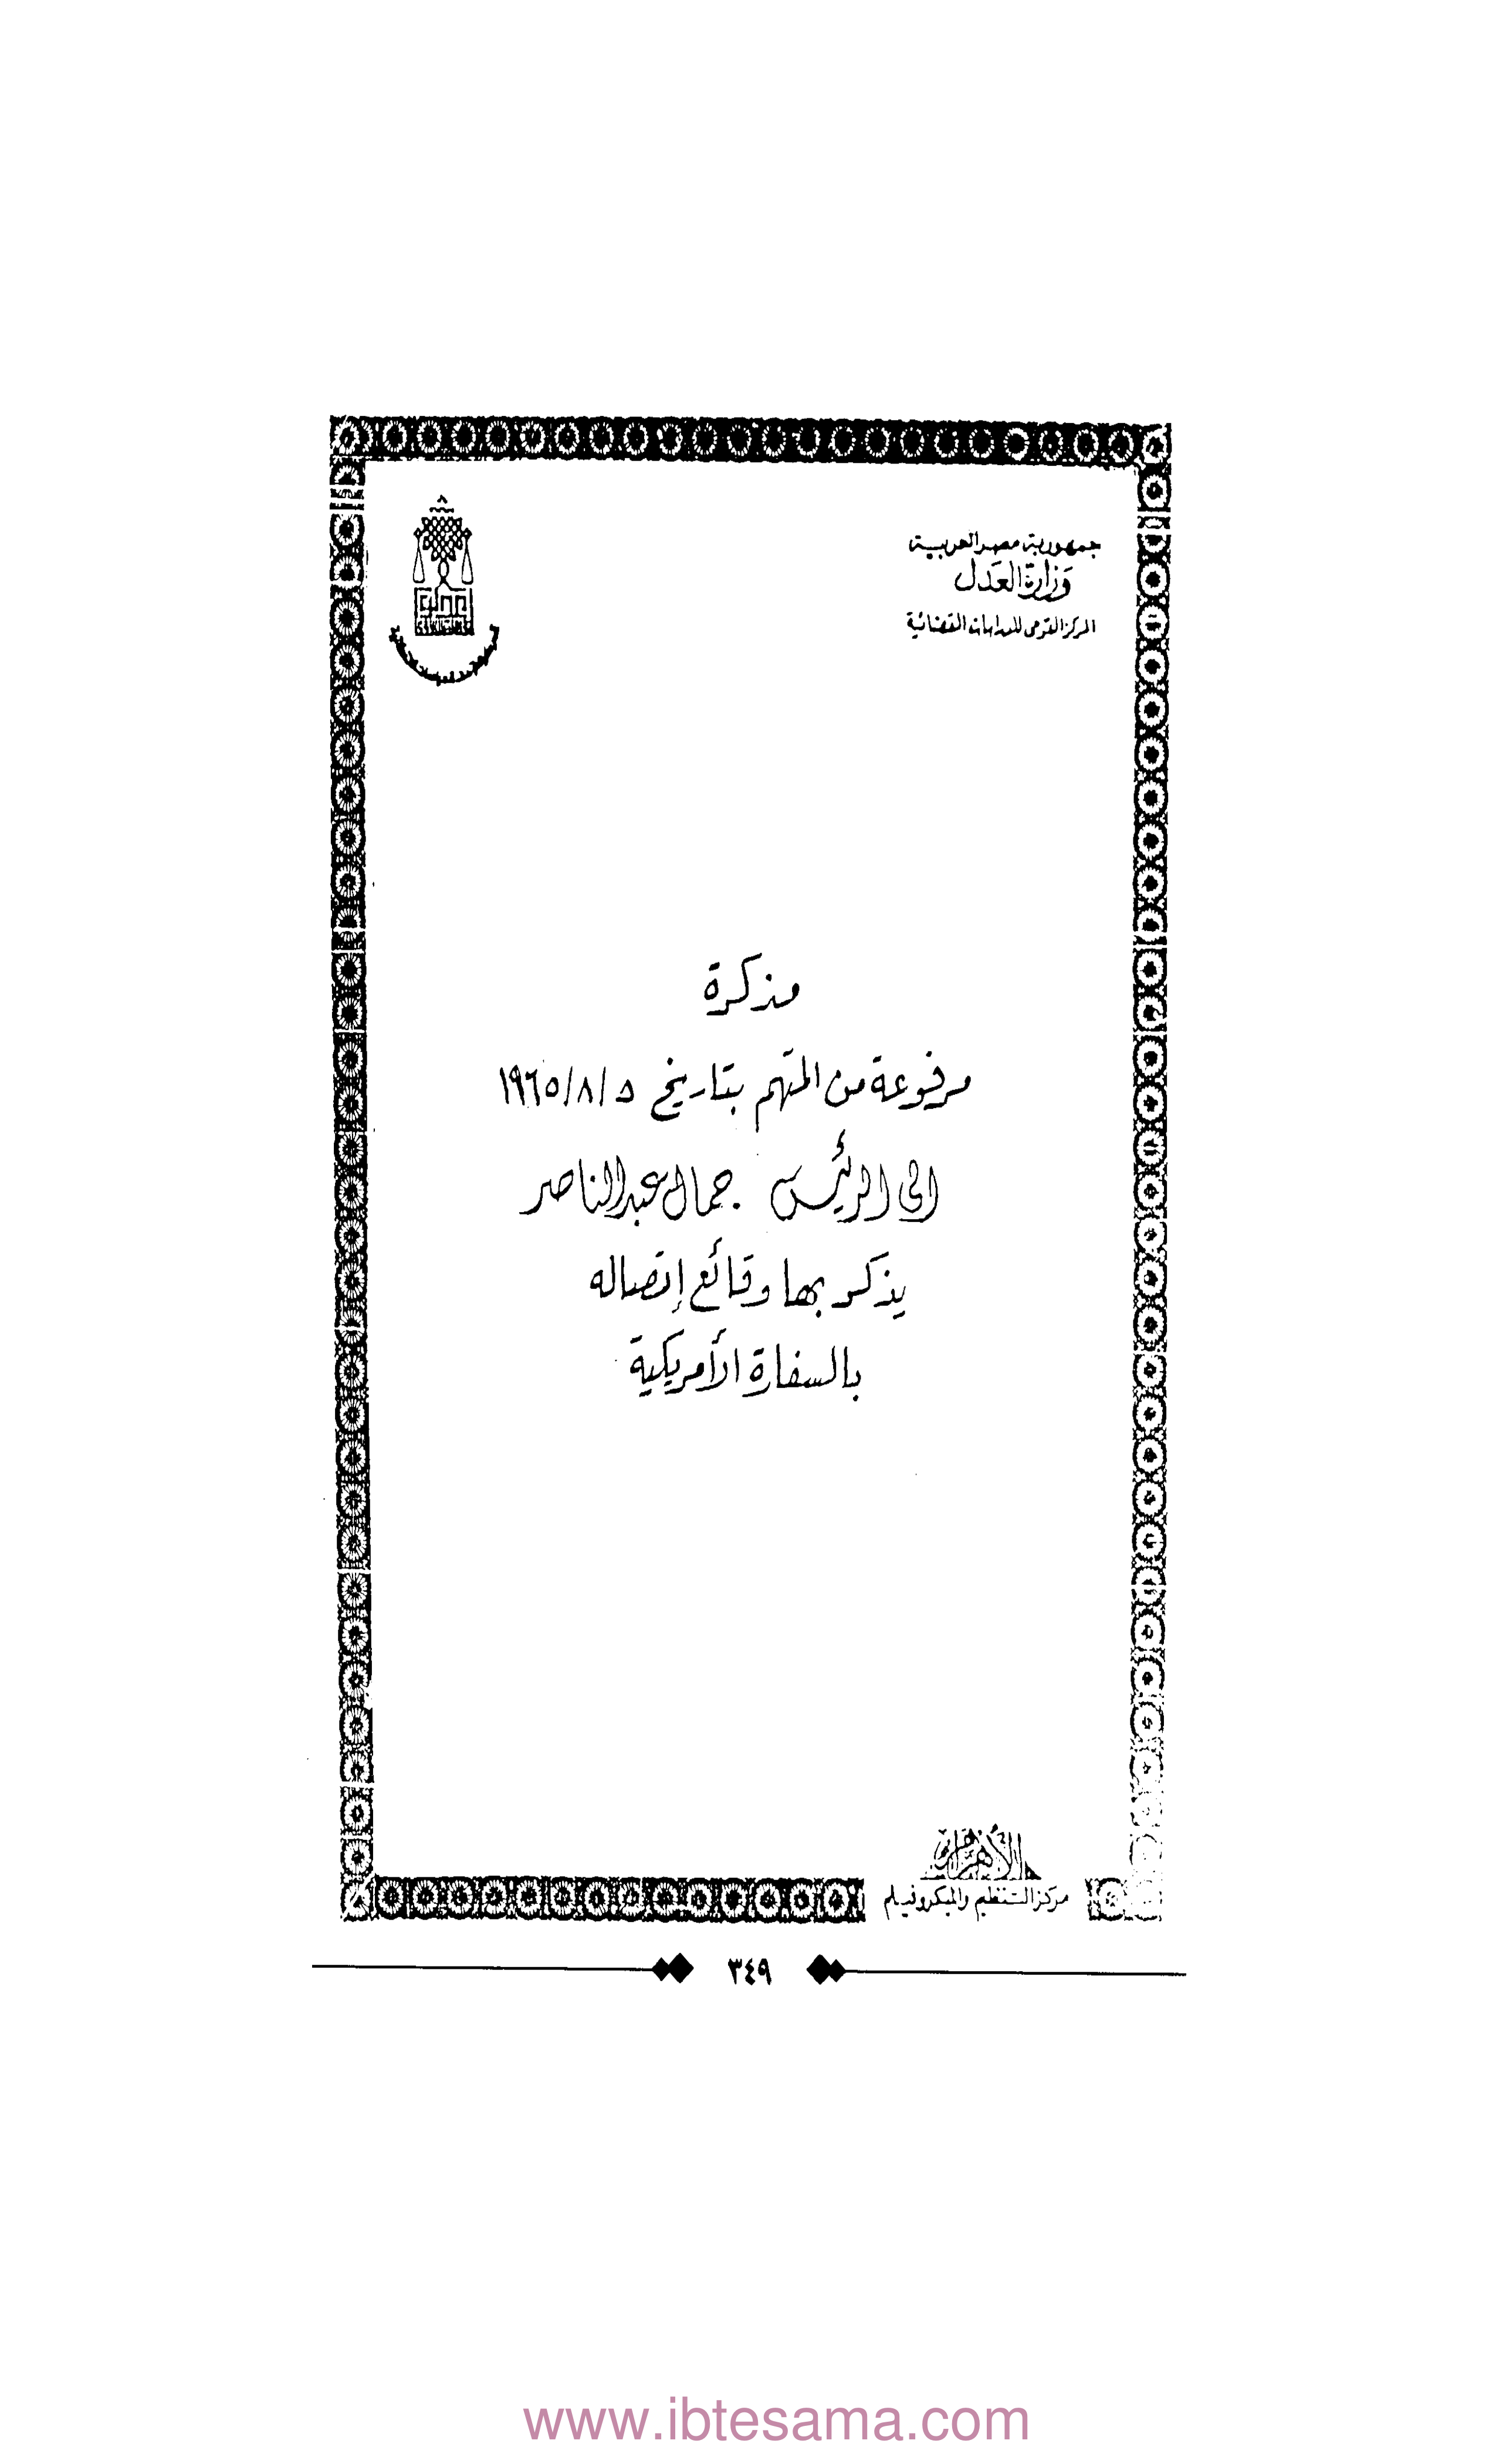 جمهورية مصر العربية
وزارة العدل
المركز القومى للدراسات القضائية
مذكرة
مرفوعة من المتهم بتاريخ ٥/٨/١٩٦٥
الى الرئيس جمال عبد الناصر
يذكر بها وقائع إتصاله
بالسفارة الأمريكية
الأهرام
مركز التنظيم والميكروفيلم
٣٤٩
www.ibtesama.com